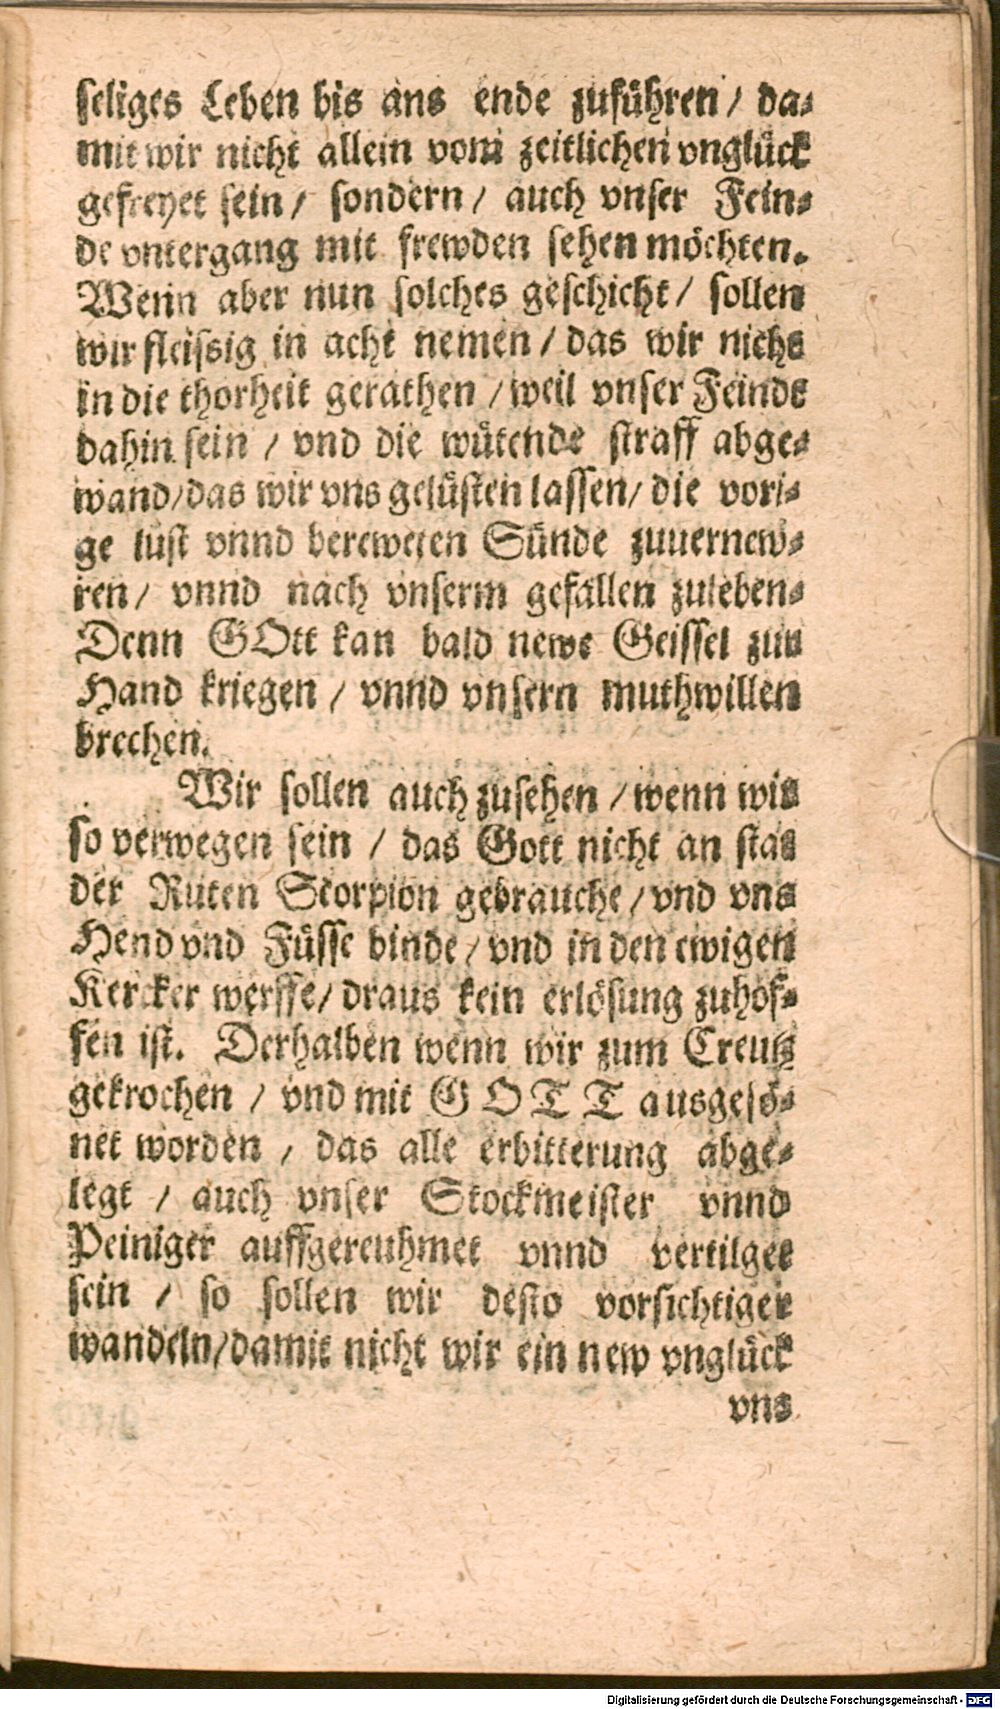 seliges Leben bis ans ende zuführen / da-
mit wir nicht allein vom zeitlichen vnglück
gefreyet sein / sondern / auch vnser Fein-
de vntergang mit frewden sehen möchten.
Wenn aber nun solches geschicht / sollen
wir fleissig in acht nemen / das wir nicht
in die thorheit gerathen / weil vnser Feinde
dahin sein / vnd die wütende straff abge-
wand / das wir vns gelüsten lassen / die vori-
ge lust vnnd bereweten Sünde zuuernew-
ren / vnnd nach vnserm gefallen zuleben-
Denn GOtt kan bald newe Geissel zur
Hand kriegen / vnnd vnsern muthwillen
brechen.
Wir sollen auch zusehen / wenn wir
so verwegen sein / das Gott nicht an stat
der Ruten Scorpion gebrauche / vnd vns
Hend vnd Füsse binde / vnd in den ewigen
Kercker werffe / draus kein erlösung zuhof-
fen ist. Derhalben wenn wir zum Creutz
gekrochen / vnd mit GOTT ausgesö-
net worden / das alle erbitterung abge-
legt / auch vnser Stockmeister vnnd
Peiniger auffgereuhmet vnnd vertilget
sein / so sollen wir desto vorsichtiger
wandeln / damit nicht wir ein new vnglück
vns
Digitalisierung gefördert durch die Deutsche Forschungsgemeinschaft - DFG